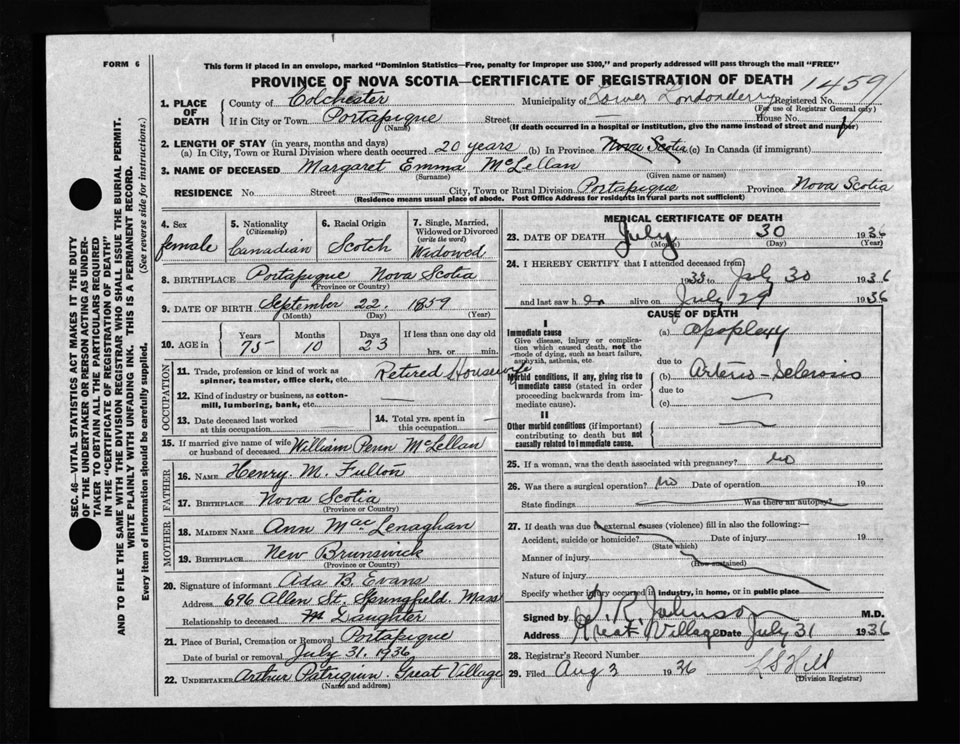 FORM 6
This form if placed in an envelope, marked "Dominion Statistics—Free, penalty for improper use $300," and properly addressed will pass through the mail "FREE"
PROVINCE OF NOVA SCOTIA—CERTIFICATE OF REGISTRATION OF DEATH
1459
1. PLACE OF DEATH
County of Colchester Municipality of Lower Londonderry Registered No.
(For use of Registrar General only)
If in City or Town Portapique Street — House No.
(Name) (If death occurred in a hospital or institution, give the name instead of street and number)
2. LENGTH OF STAY (in years, months and days)
(a) In City, Town or Rural Division where death occurred 20 years (b) In Province Nova Scotia (c) In Canada (if immigrant)
3. NAME OF DECEASED Margaret Emma McLellan
(Surname) (Given name or names)
RESIDENCE No. Street — City, Town or Rural Division Portapique Province Nova Scotia
(Residence means usual place of abode. Post Office Address for residents in rural parts not sufficient)
4. Sex female
5. Nationality (Citizenship) Canadian
6. Racial Origin Scotch
7. Single, Married, Widowed or Divorced (write the word) Widowed
8. BIRTHPLACE Portapique Nova Scotia
(Province or Country)
9. DATE OF BIRTH September 22, 1859
(Month) (Day) (Year)
10. AGE in Years 75 Months 10 Days 23 If less than one day old hrs. or min.
OCCUPATION
11. Trade, profession or kind of work as spinner, teamster, office clerk, etc. Retired Housewife
12. Kind of industry or business, as cotton-mill, lumbering, bank, etc. —
13. Date deceased last worked at this occupation
14. Total yrs. spent in this occupation —
15. If married give name of wife or husband of deceased William Penn McLellan
FATHER
16. Name Henry M. Fulton
17. BIRTHPLACE Nova Scotia
(Province or Country)
MOTHER
18. MAIDEN NAME Ann MacLenaghan
19. BIRTHPLACE New Brunswick
(Province or Country)
20. Signature of informant Ada B. Evans
Address 696 Allen St. Springfield. Mass
Relationship to deceased Daughter
21. Place of Burial, Cremation or Removal Portapique
Date of burial or removal July 31, 1936
22. UNDERTAKER Arthur Patriquin. Great Village
(Name and address)
MEDICAL CERTIFICATE OF DEATH
23. DATE OF DEATH July 30 1936
(Month) (Day) (Year)
24. I HEREBY CERTIFY that I attended deceased from
1933 to July 30 1936
and last saw h er alive on July 29 1936
CAUSE OF DEATH
I
Immediate cause
Give disease, injury or complication which caused death, not the mode of dying, such as heart failure, asphyxia, asthenia, etc.
(a) apoplexy
due to
Morbid conditions, if any, giving rise to immediate cause (stated in order proceeding backwards from immediate cause).
(b) Arterio-Sclerosis
due to
(c)
II
Other morbid conditions (if important) contributing to death but not causally related to immediate cause.
25. If a woman, was the death associated with pregnancy? no
26. Was there a surgical operation? No Date of operation 19
State findings Was there an autopsy?
27. If death was due to external causes (violence) fill in also the following:—
Accident, suicide or homicide? Date of injury 19
(State which)
Manner of injury
(How sustained)
Nature of injury
Specify whether injury occurred in industry, in home, or in public place
Signed by Johnson M.D.
Address Great Village Date July 31 1936
28. Registrar's Record Number
29. Filed Aug 3 1936 L S Hill
(Division Registrar)
SEC. 46—VITAL STATISTICS ACT MAKES IT THE DUTY
OF THE UNDERTAKER OR PERSON ACTING AS UNDER-
TAKER TO OBTAIN ALL THE PARTICULARS REQUIRED
IN THE "CERTIFICATE OF REGISTRATION OF DEATH"
AND TO FILE THE SAME WITH THE DIVISION REGISTRAR WHO SHALL ISSUE THE BURIAL PERMIT.
WRITE PLAINLY WITH UNFADING INK. THIS IS A PERMANENT RECORD.
Every item of information should be carefully supplied. (See reverse side for instructions.)